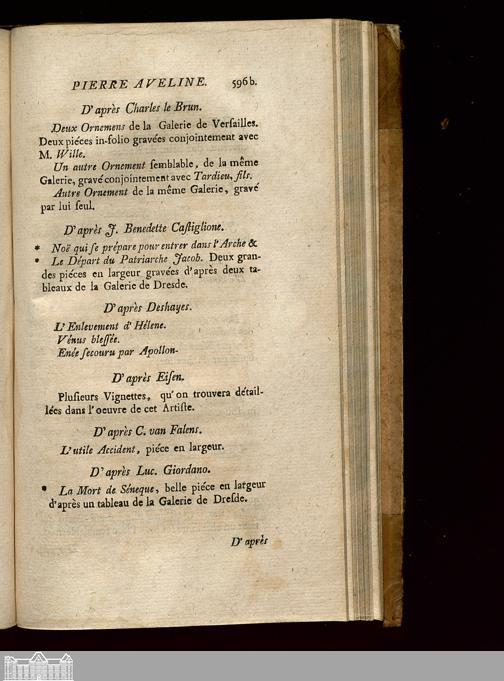 PIERRE AVELINE. 596b.
D'après Charles le Brun.
Deux Ornemens de la Galerie de Verſailles.
Deux piéces in-folio gravées conjointement avec
M. Wille.
Un autre Ornement ſemblable, de la même
Galerie, gravé conjointement avec Tardieu, fils.
Autre Ornement de la même Galerie, gravé
par lui ſeul.
D'après J. Benedette Caſtiglione.
* Noë qui ſe prépare pour entrer dans l'Arche &
* Le Départ du Patriarche Jacob. Deux gran-
des piéces en largeur gravées d'après deux ta-
bleaux de la Galerie de Dresde.
D'après Deshayes.
L'Enlevement d'Hélene.
Vénus bleſſée.
Enée ſecouru par Apollon-
D'après Eiſen.
Pluſieurs Vignettes, qu'on trouvera détail-
lées dans l'oeuvre de cet Artiſte.
D'après C. van Falens.
L'utile Accident, piéce en largeur.
D'après Luc. Giordano.
* La Mort de Séneque, belle piéce en largeur
d'après un tableau de la Galerie de Dreſde.
D'après